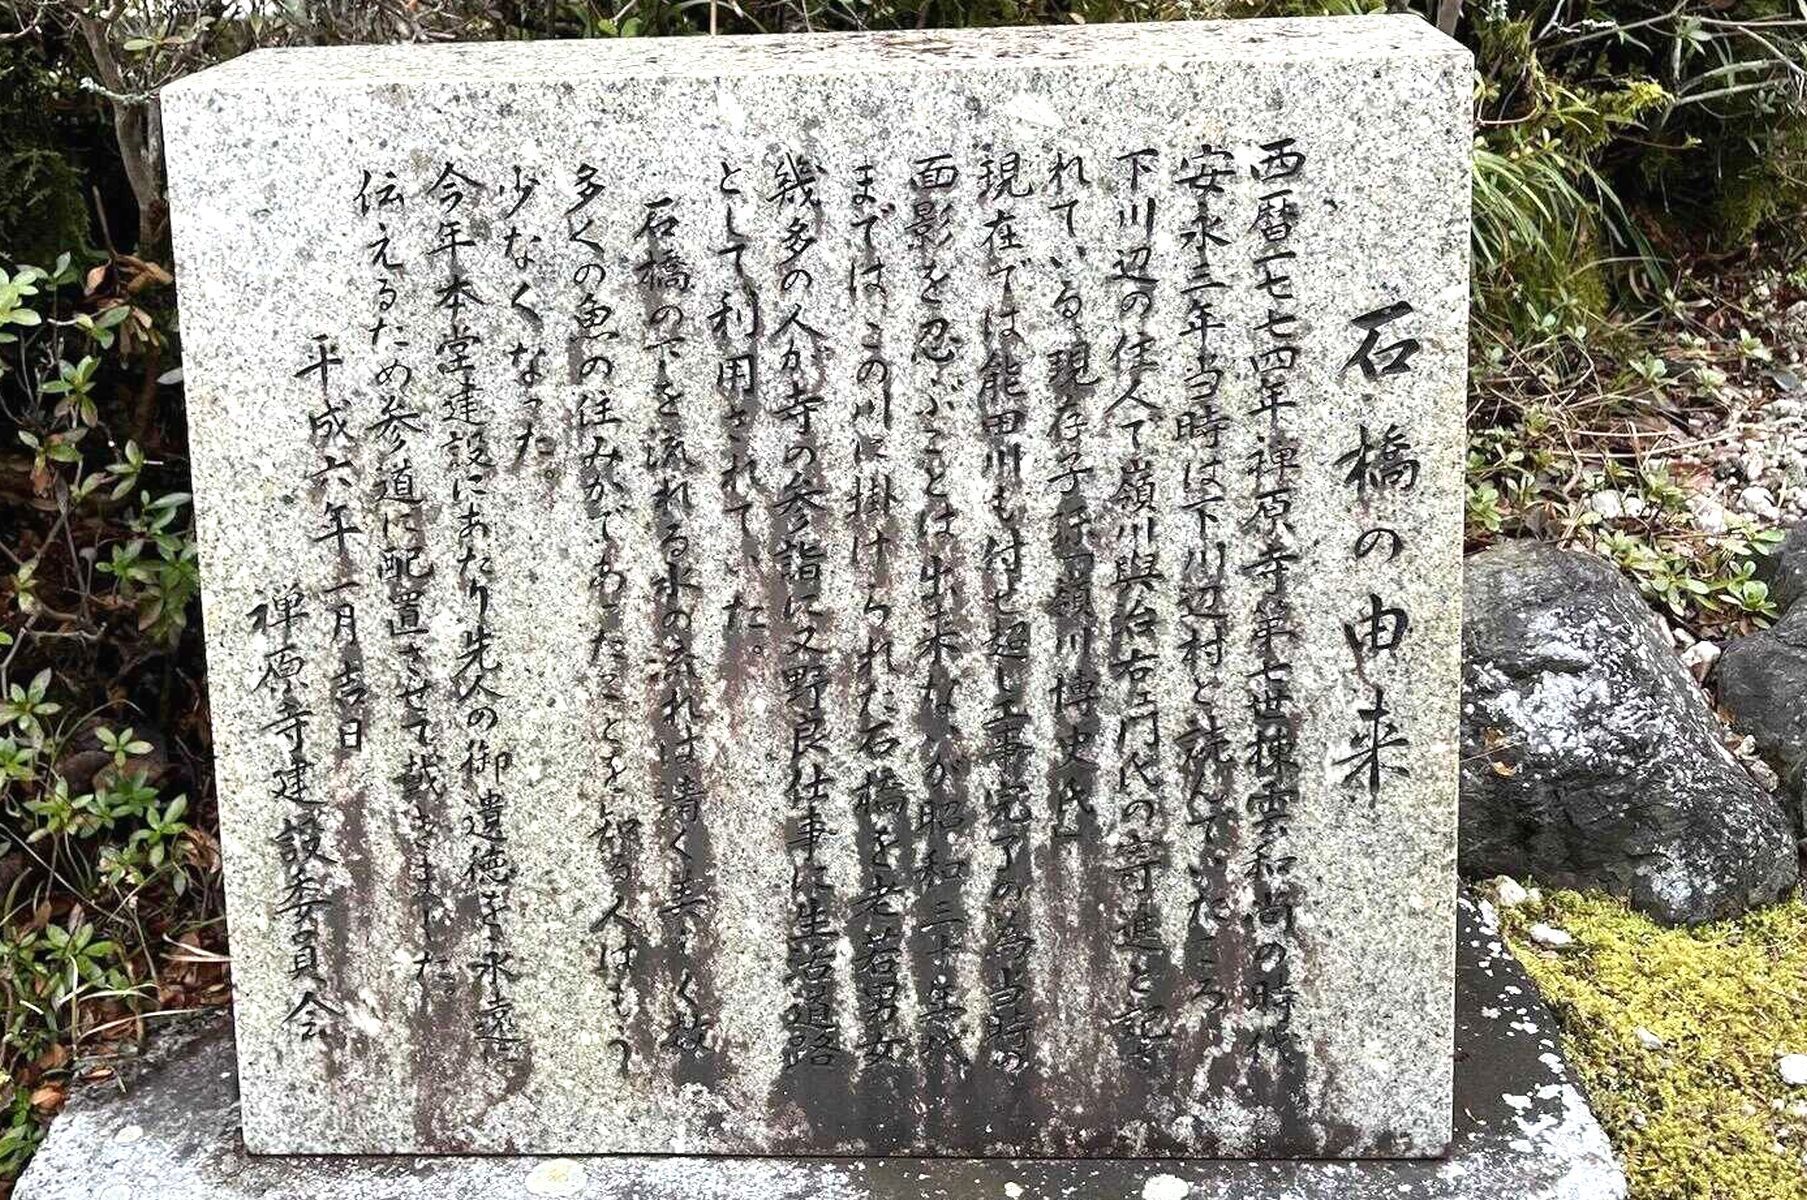 石橋の由来
西暦一七七四年禅原寺第七世棟雲和尚の時代
安永三年当時は下川辺村と読んでいたころ
下川辺の住人で嶺川與右ヱ門代の寄進と記さ
れている現存子孫「嶺川博史氏」
現在では能田川も付せ趣し工事完了の為当時の
面影を忍ぶことは出来ないが昭和三十年代
まではこの川に掛けられた石橋を老若男女
幾多の人が寺の参詣に又野良仕事に生活道路
として利用されていた。
石橋の下を流れる水の流れは清く美しく故
多くの魚の住みかであったことを知る人はもう
少なくなった。
今年本堂建設にあたり先人の御遺徳を永遠に
伝えるため参道に配置させて戴きました
平成六年一月吉日
禅原寺建設委員会